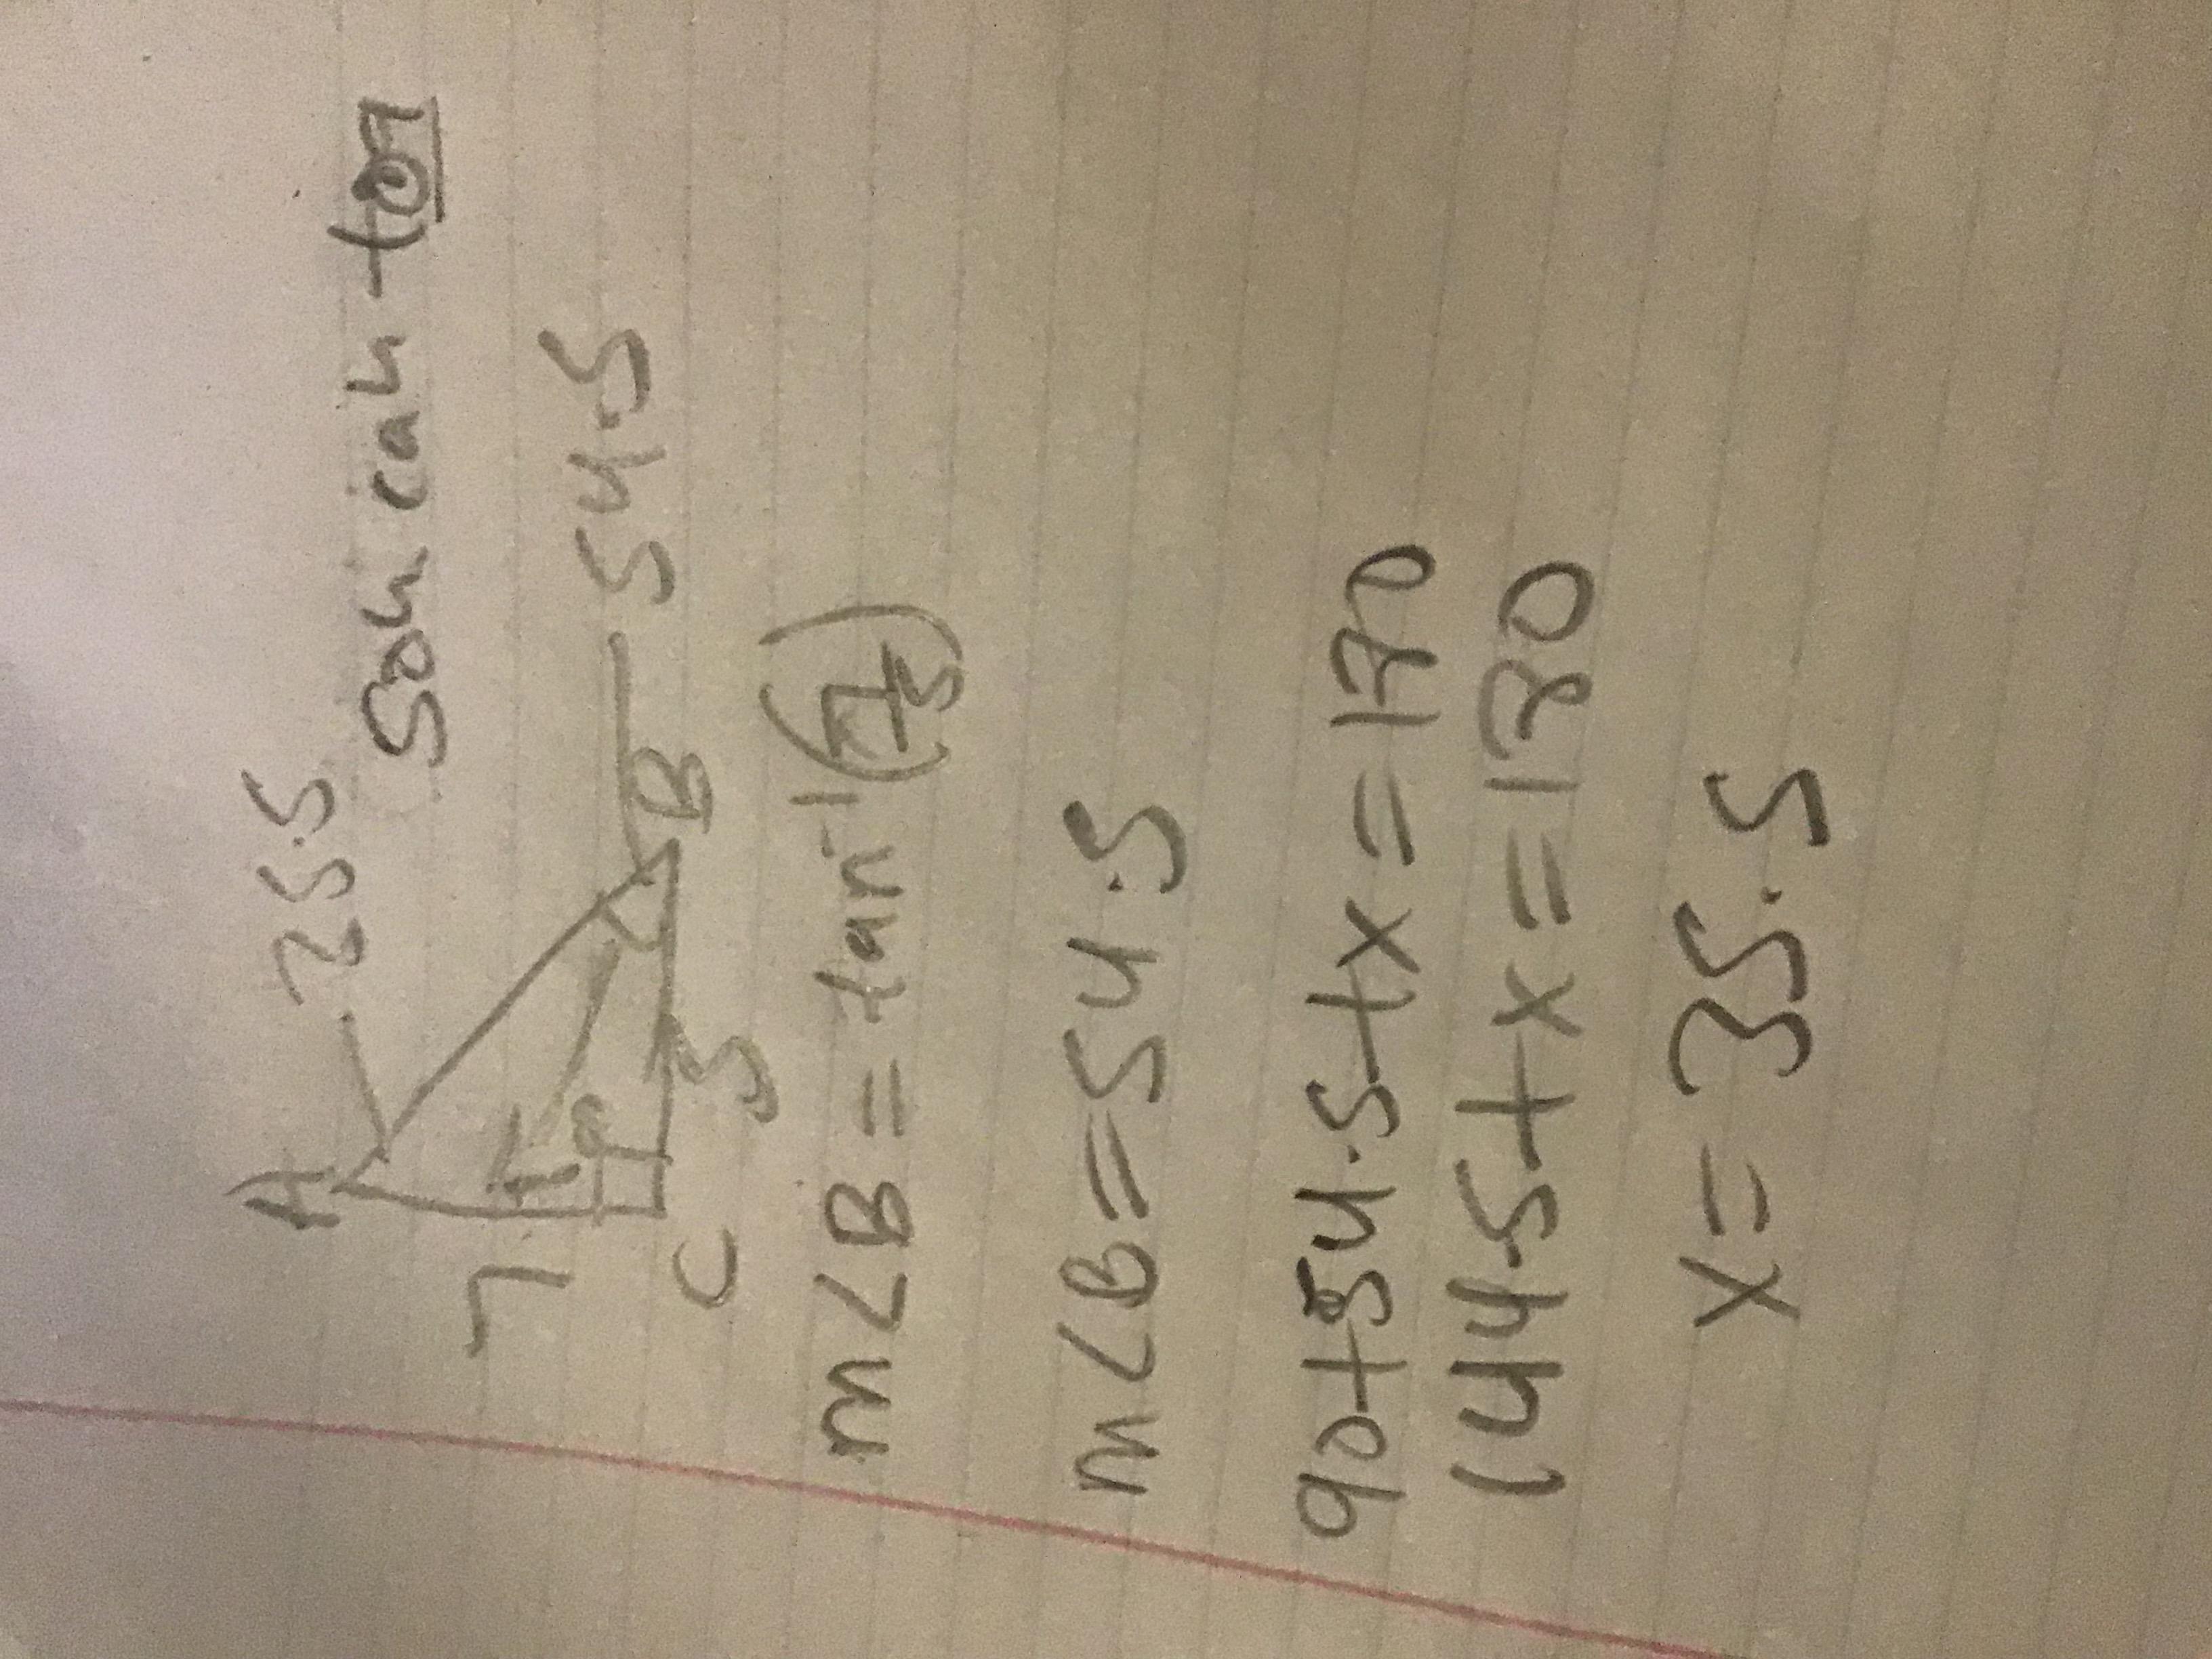 A 25.5
soh cah toa
7
B 54.5
C 5
m<B = tan⁻¹(7/5)
m<B = 54.5
90+54.5+x=180
144.5+x=180
x = 35.5